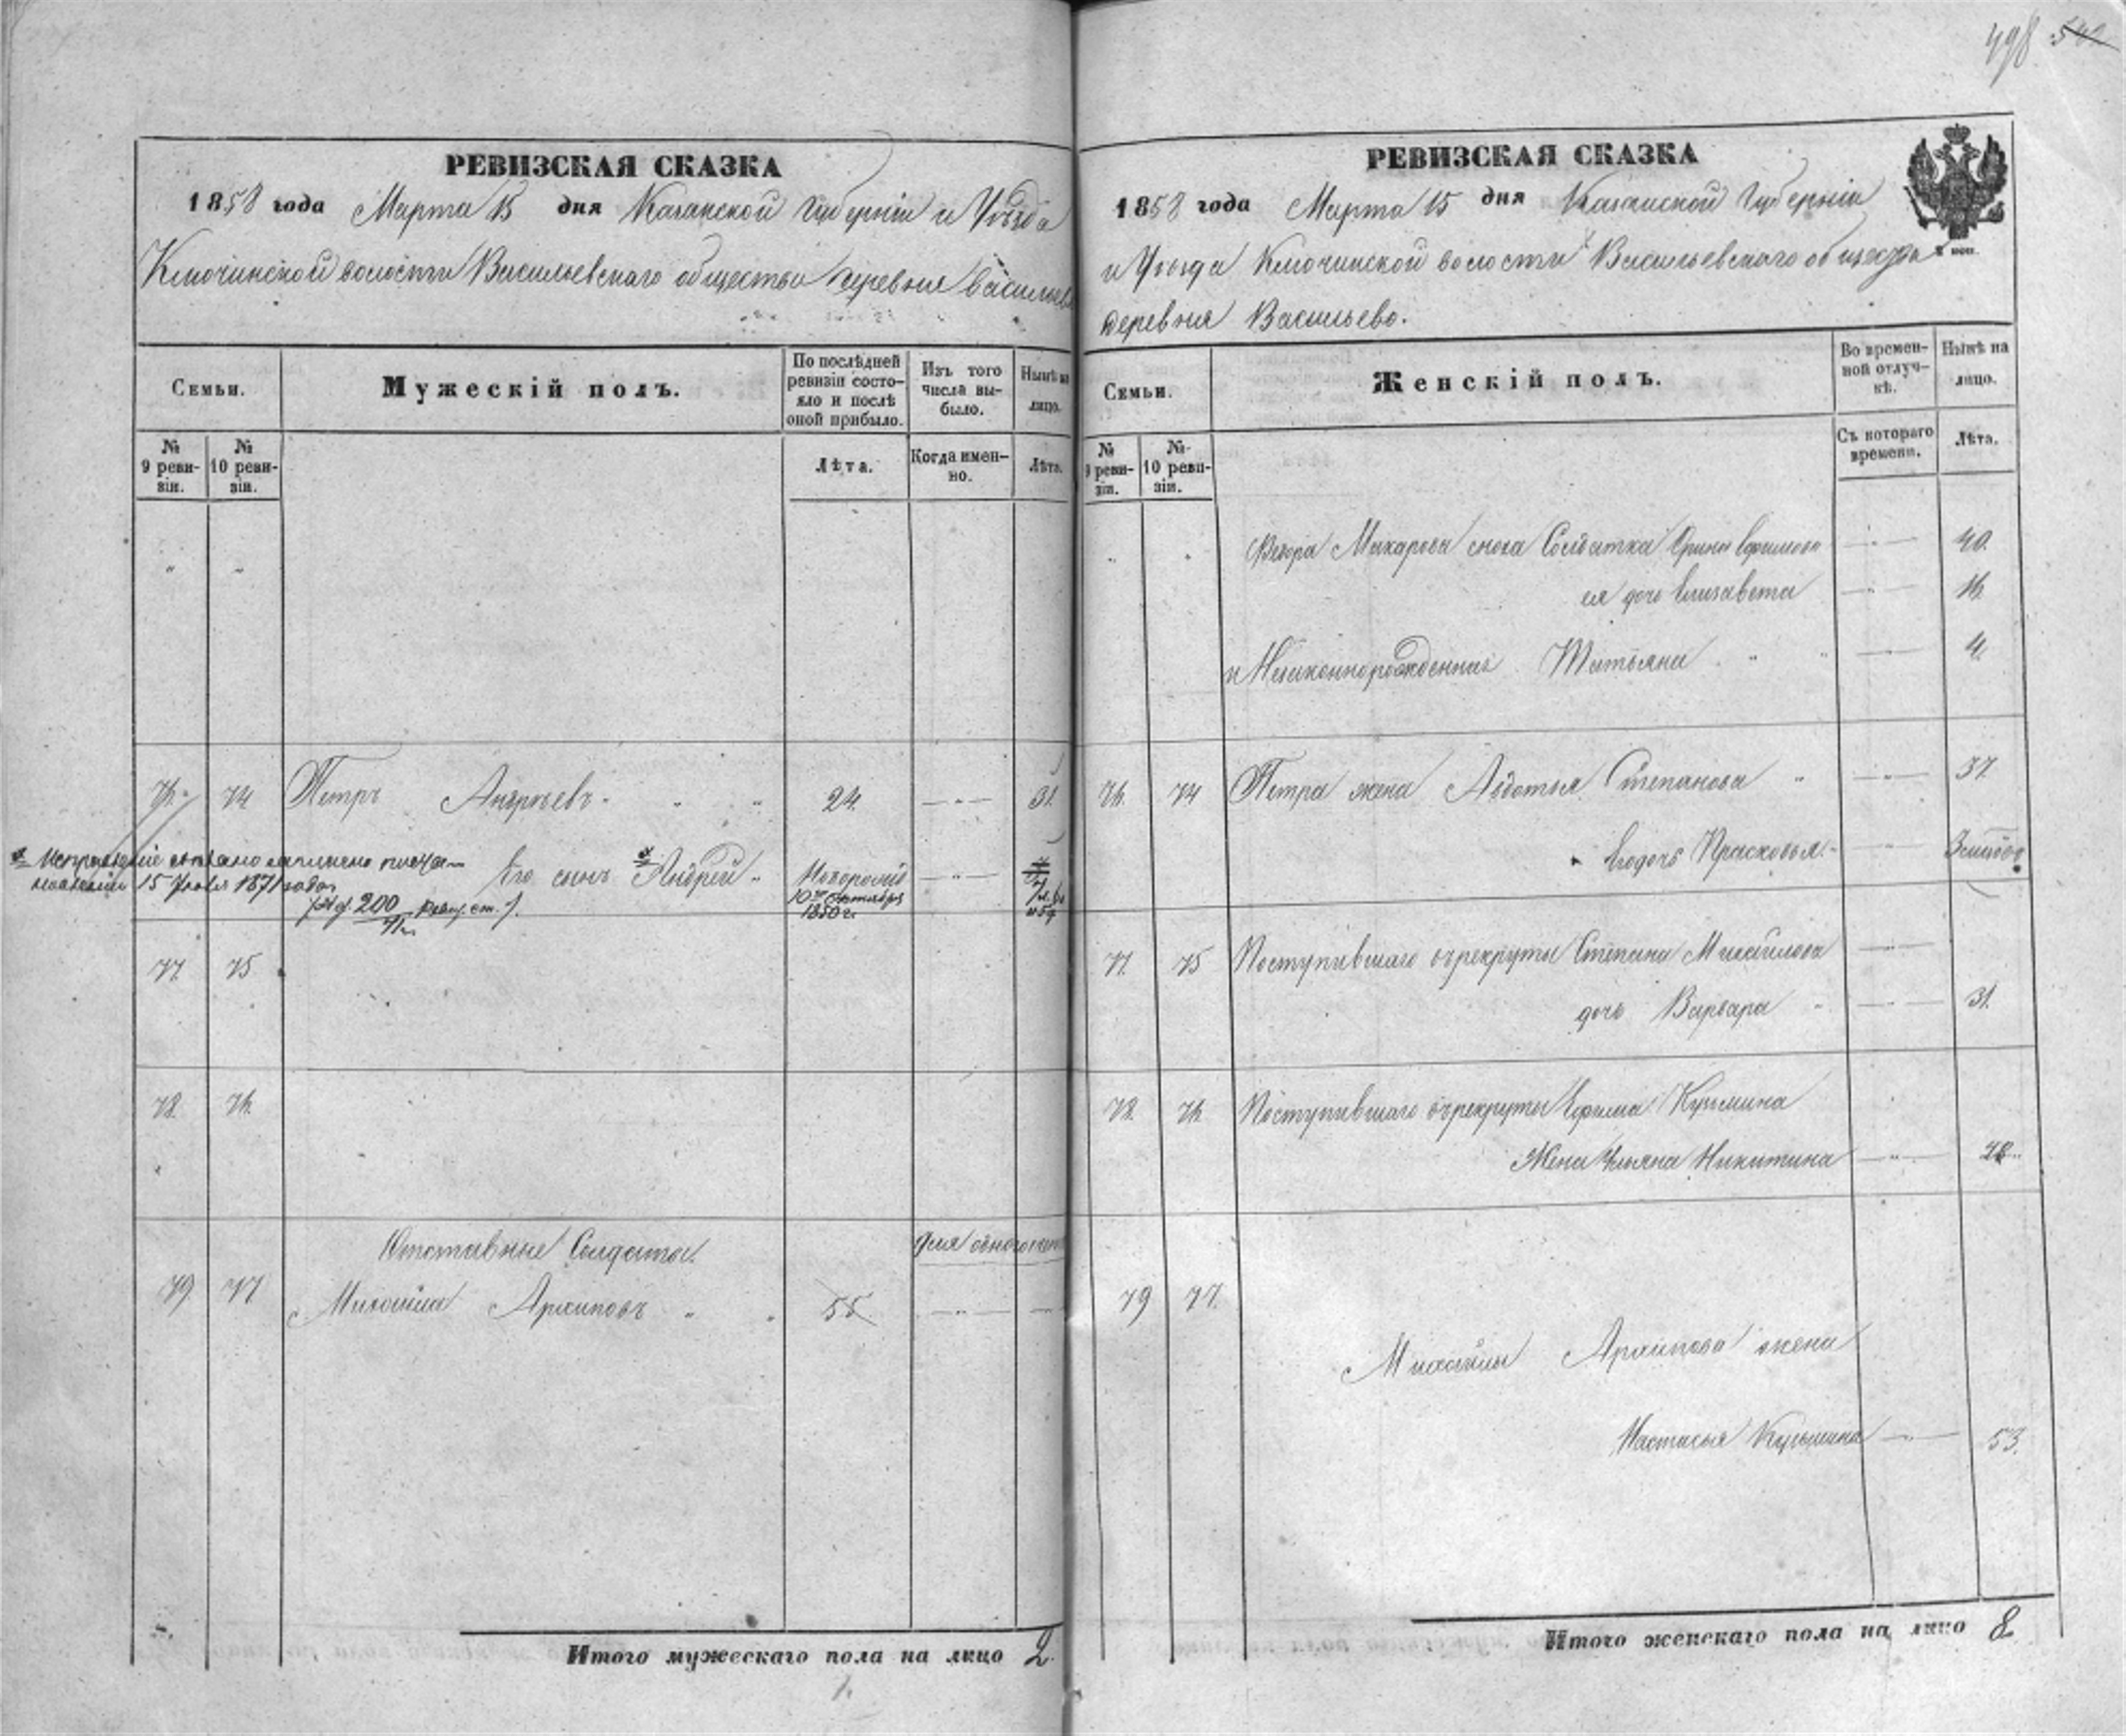 498 542
РЕВИЗСКАЯ СКАЗКА
1858 года Марта 15 дня Казанской Губерніи и Уѣзда
Ключинской волости Васильевскаго общества деревня Васильево
Семьи.
Мужескій полъ.
По послѣдней
ревизіи состо-
яло и послѣ
оной прибыло.
Изъ того
числа вы-
было.
Нынѣ на
лицо.
№
9 реви-
зіи.
№
10 реви-
зіи.
Лѣта.
Когда имен-
но.
Лѣта.
76. 74 Петръ Андреевъ 24. 31.
Его сынъ Андрей
10го
1850 г.
15 Іюля 1871 года
200 ревиз. ст.
77. 75
78. 76.
Отставные Солдаты.
79 77. Михайла Архиповъ 55.
Итого мужескаго пола на лицо 2.
РЕВИЗСКАЯ СКАЗКА
1858 года Марта 15 дня Казанской Губерніи
и Уѣзда Ключинской волости Васильевскаго общества
деревня Васильево.
Семьи.
Женскій полъ.
Во времен-
ной отлуч-
кѣ.
Нынѣ на
лицо.
№
9 реви-
зіи.
№
10 реви-
зіи.
Съ котораго
времени.
Лѣта.
Макарова сноха Солдатка Арина Ефимова 40.
ея дочь Елизавета 16.
и Незаконнорожденная Татьяна 4.
76. 74 Петра жена Авдотья Степанова 37.
Его дочь Прасковья.
77. 75 Поступившаго въ рекруты Степана Михайлова
дочь Варвара 31.
78. 76. Поступившаго въ рекруты Ефима Кузьмина
Жена Ульяна Никитина 48.
79 77.
Михайлы Архипова жена
Настасья Кузьмина 53.
Итого женскаго пола на лицо 8